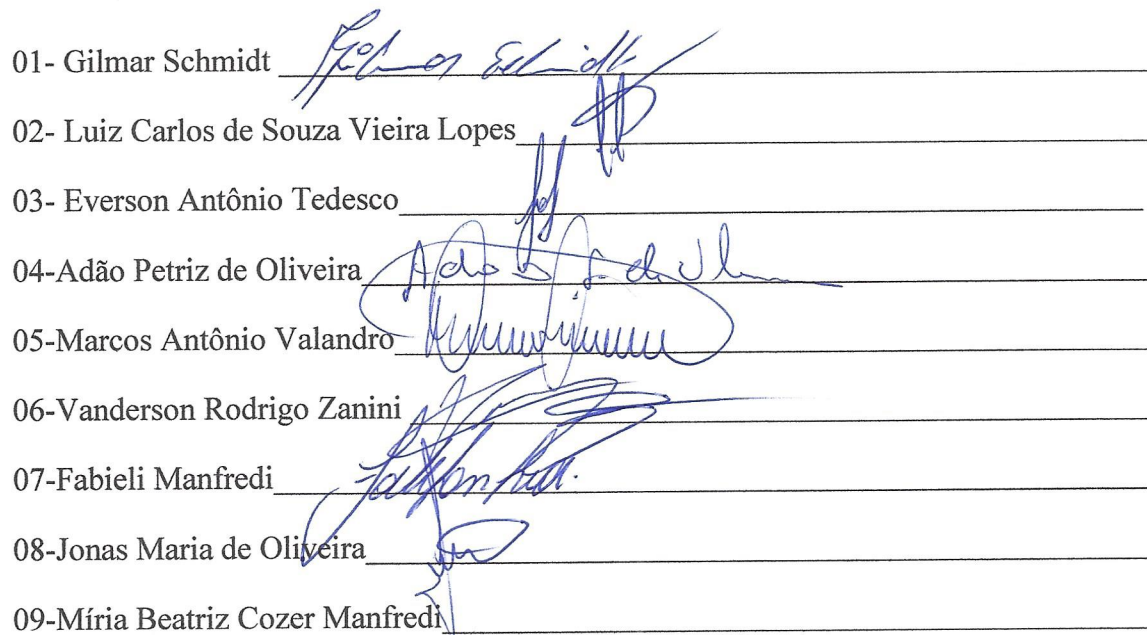 01- Gilmar Schmidt Gilmar Schmidt
02- Luiz Carlos de Souza Vieira Lopes
03- Everson Antônio Tedesco
04-Adão Petriz de Oliveira
05-Marcos Antônio Valandro
06-Vanderson Rodrigo Zanini
07-Fabieli Manfredi
08-Jonas Maria de Oliveira
09-Míria Beatriz Cozer Manfredi